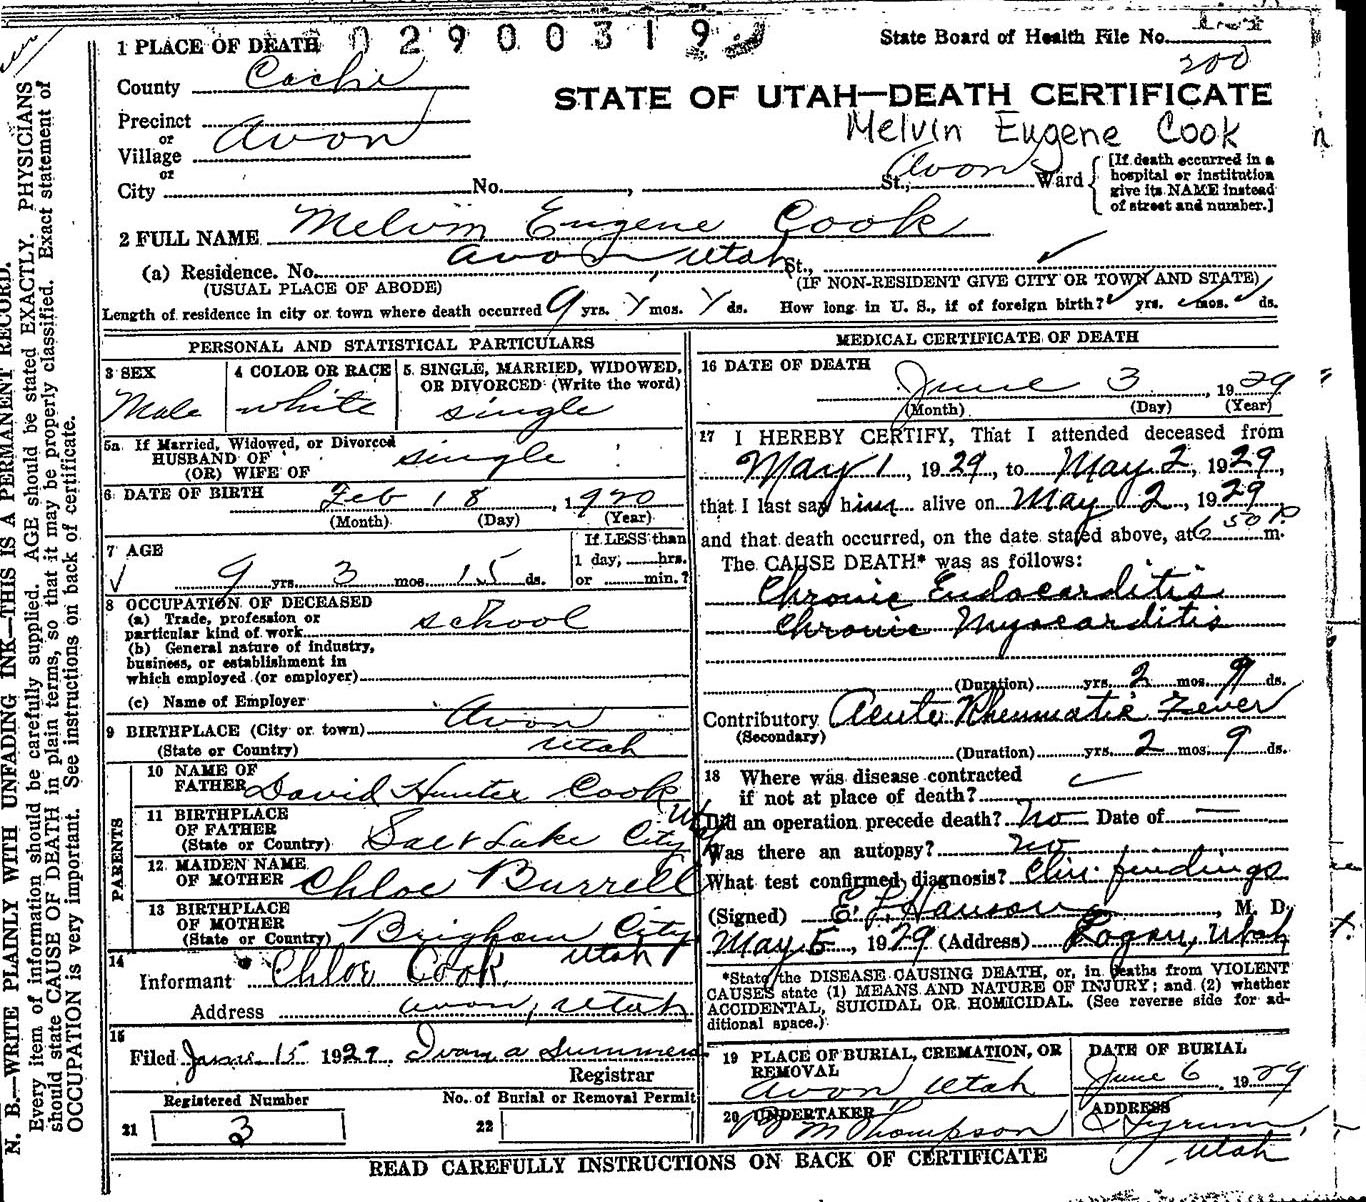 0 2 9 0 0 3 1 9
1 PLACE OF DEATH
State Board of Health File No.
200
County Cache
STATE OF UTAH—DEATH CERTIFICATE
Melvin Eugene Cook
Precinct
or
Village Avon
or
City No. , St., Avon Ward
[If death occurred in a
hospital or institution
give its NAME instead
of street and number.]
2 FULL NAME Melvin Eugene Cook
(a) Residence. No. Avon, Utah St.,
(USUAL PLACE OF ABODE) (IF NON-RESIDENT GIVE CITY OR TOWN AND STATE)
Length of residence in city or town where death occurred 9 yrs. mos. ds. How long in U. S., if of foreign birth? yrs. mos. ds.
PERSONAL AND STATISTICAL PARTICULARS
3 SEX
Male
4 COLOR OR RACE
white
5. SINGLE, MARRIED, WIDOWED,
OR DIVORCED (Write the word)
single
5a If Married, Widowed, or Divorced
HUSBAND OF
(OR) WIFE OF single
6 DATE OF BIRTH Feb 18, 1920
(Month) (Day) (Year)
7 AGE
9 yrs. 3 mos. 15 ds.
If LESS than
1 day, hrs.
or min.?
8 OCCUPATION OF DECEASED
(a) Trade, profession or
particular kind of work school
(b) General nature of industry,
business, or establishment in
which employed (or employer)
(c) Name of Employer
9 BIRTHPLACE (City or town) Avon
(State or Country) Utah
PARENTS
10 NAME OF
FATHER David Hunter Cook
11 BIRTHPLACE
OF FATHER
(State or Country) Salt Lake City Utah
12 MAIDEN NAME
OF MOTHER Chloe Burrell
13 BIRTHPLACE
OF MOTHER
(State or Country) Brigham City
Utah
14
Informant Chloe Cook
Address Avon, Utah
15
Filed June 15 1929 Ivan a Summers
Registrar
Registered Number
21 3
No. of Burial or Removal Permit
22
MEDICAL CERTIFICATE OF DEATH
16 DATE OF DEATH
June 3, 1929
(Month) (Day) (Year)
17 I HEREBY CERTIFY, That I attended deceased from
May 1, 1929, to May 2, 1929,
that I last saw him alive on May 2, 1929
and that death occurred, on the date stated above, at 6 50 P. m.
The CAUSE DEATH* was as follows:
Chronic Endocarditis
Chronic Myocarditis
(Duration) yrs. 2 mos. 9 ds.
Contributory Acute Rheumatic Fever
(Secondary)
(Duration) yrs. 2 mos. 9 ds.
18 Where was disease contracted
if not at place of death?
Did an operation precede death? No Date of
Was there an autopsy? no
What test confirmed diagnosis? Clin. findings
(Signed) E L Hanson, M. D.
May 5, 1929 (Address) Logan, Utah
*State the DISEASE CAUSING DEATH, or, in deaths from VIOLENT
CAUSES state (1) MEANS AND NATURE OF INJURY; and (2) whether
ACCIDENTAL, SUICIDAL OR HOMICIDAL. (See reverse side for ad-
ditional space.)
19 PLACE OF BURIAL, CREMATION, OR
REMOVAL
Avon Utah
DATE OF BURIAL
June 6, 1929
20 UNDERTAKER
M Thompson
ADDRESS
Hyrum,
Utah
READ CAREFULLY INSTRUCTIONS ON BACK OF CERTIFICATE
N. B.—WRITE PLAINLY WITH UNFADING INK—THIS IS A PERMANENT RECORD.
Every item of information should be carefully supplied. AGE should be stated EXACTLY. PHYSICIANS
should state CAUSE OF DEATH in plain terms, so that it may be properly classified. Exact statement of
OCCUPATION is very important. See instructions on back of certificate.